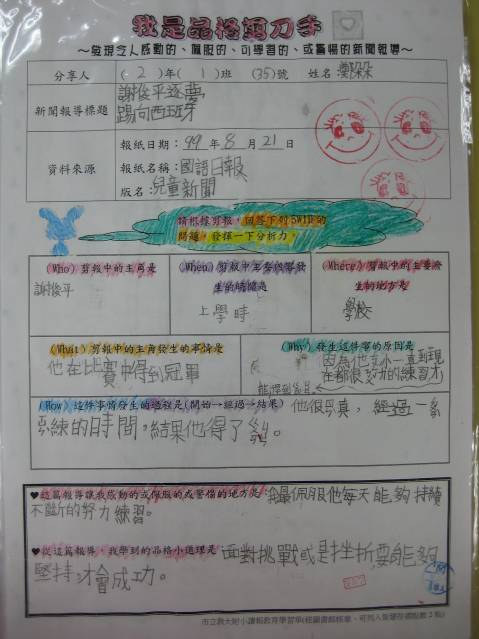 我是品格剪刀手
～發現令人感動的、佩服的、可學習的、或警惕的新聞報導～
分享人 ( 2 )年( 1 )班 (35)號 姓名:鄭朵朵
新聞報導標題 謝俊平逐夢
踢向西班牙
資料來源
報紙日期: 99 年 8 月 21 日
報紙名稱: 國語日報
版名: 兒童新聞
請根據剪報,回答下列5W1H的
問題,發揮一下分析力。
(Who)剪報中的主角是
謝俊平
(When)剪報中主要內容發
生的時間是
上學時
(Where)剪報中的主要發
生的地方是
學校
(What)剪報中的主角發生的事情是
他在比賽中得到冠軍
(Why)發生這件事的原因是
因為他從小一直到現
在都很努力的練習才
能得到冠軍
(How)這件事情發生的過程是(開始→經過→結果) 他很認真,經過一
練的時間,結果他得了
♥這篇報導讓我感動的或佩服的或警惕的地方是:我最佩服他每天能夠持續
不斷的努力練習。
♥從這篇報導,我學到的品格小道理是 面對挑戰或是挫折,要能夠
堅持,才會成功。